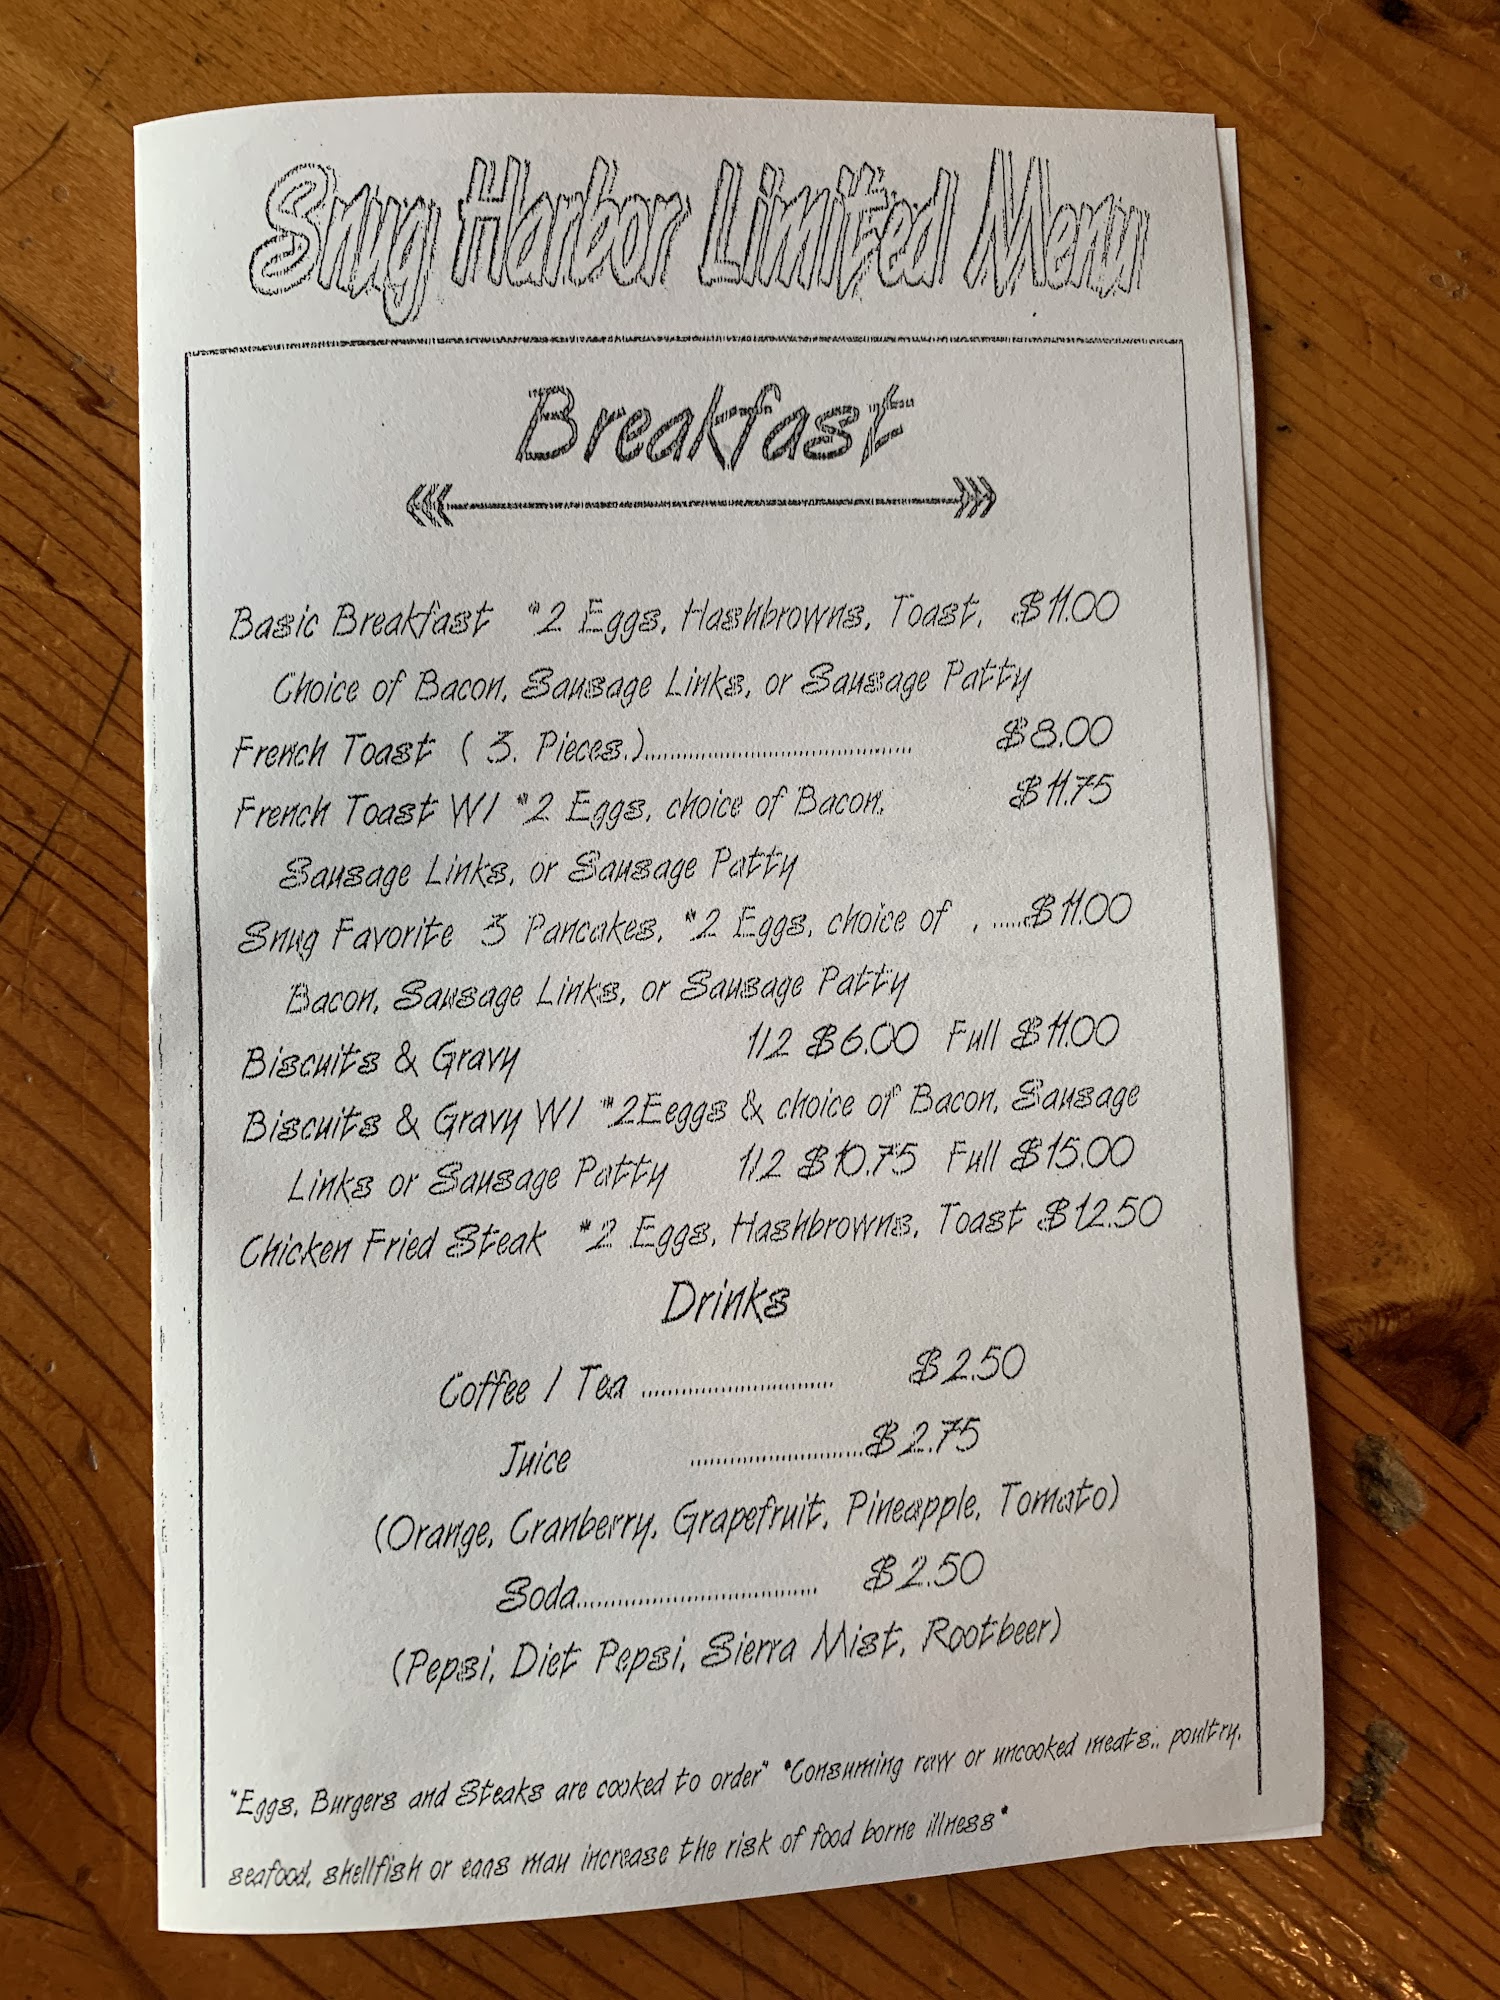 Snug Harbor Limited Menu
Breakfast
Basic Breakfast *2 Eggs, Hashbrowns, Toast, $11.00
Choice of Bacon, Sausage Links, or Sausage Patty
French Toast ( 3. Pieces.)......................................... $8.00
French Toast W/ *2 Eggs, choice of Bacon, $11.75
Sausage Links, or Sausage Patty
Snug Favorite 3 Pancakes, *2 Eggs, choice of , ......$11.00
Bacon, Sausage Links, or Sausage Patty
Biscuits & Gravy 1/2 $6.00 Full $11.00
Biscuits & Gravy W/ *2Eeggs & choice of Bacon, Sausage
Links or Sausage Patty 1/2 $10.75 Full $15.00
Chicken Fried Steak *2 Eggs, Hashbrowns, Toast $12.50
Drinks
Coffee / Tea ............................. $2.50
Juice ...........................$2.75
(Orange, Cranberry, Grapefruit, Pineapple, Tomato)
Soda.................................... $2.50
(Pepsi, Diet Pepsi, Sierra Mist, Rootbeer)
"Eggs, Burgers and Steaks are cooked to order" *Consuming raw or uncooked meats,, poultry,
seafood, shellfish or eggs may increase the risk of food borne illness*